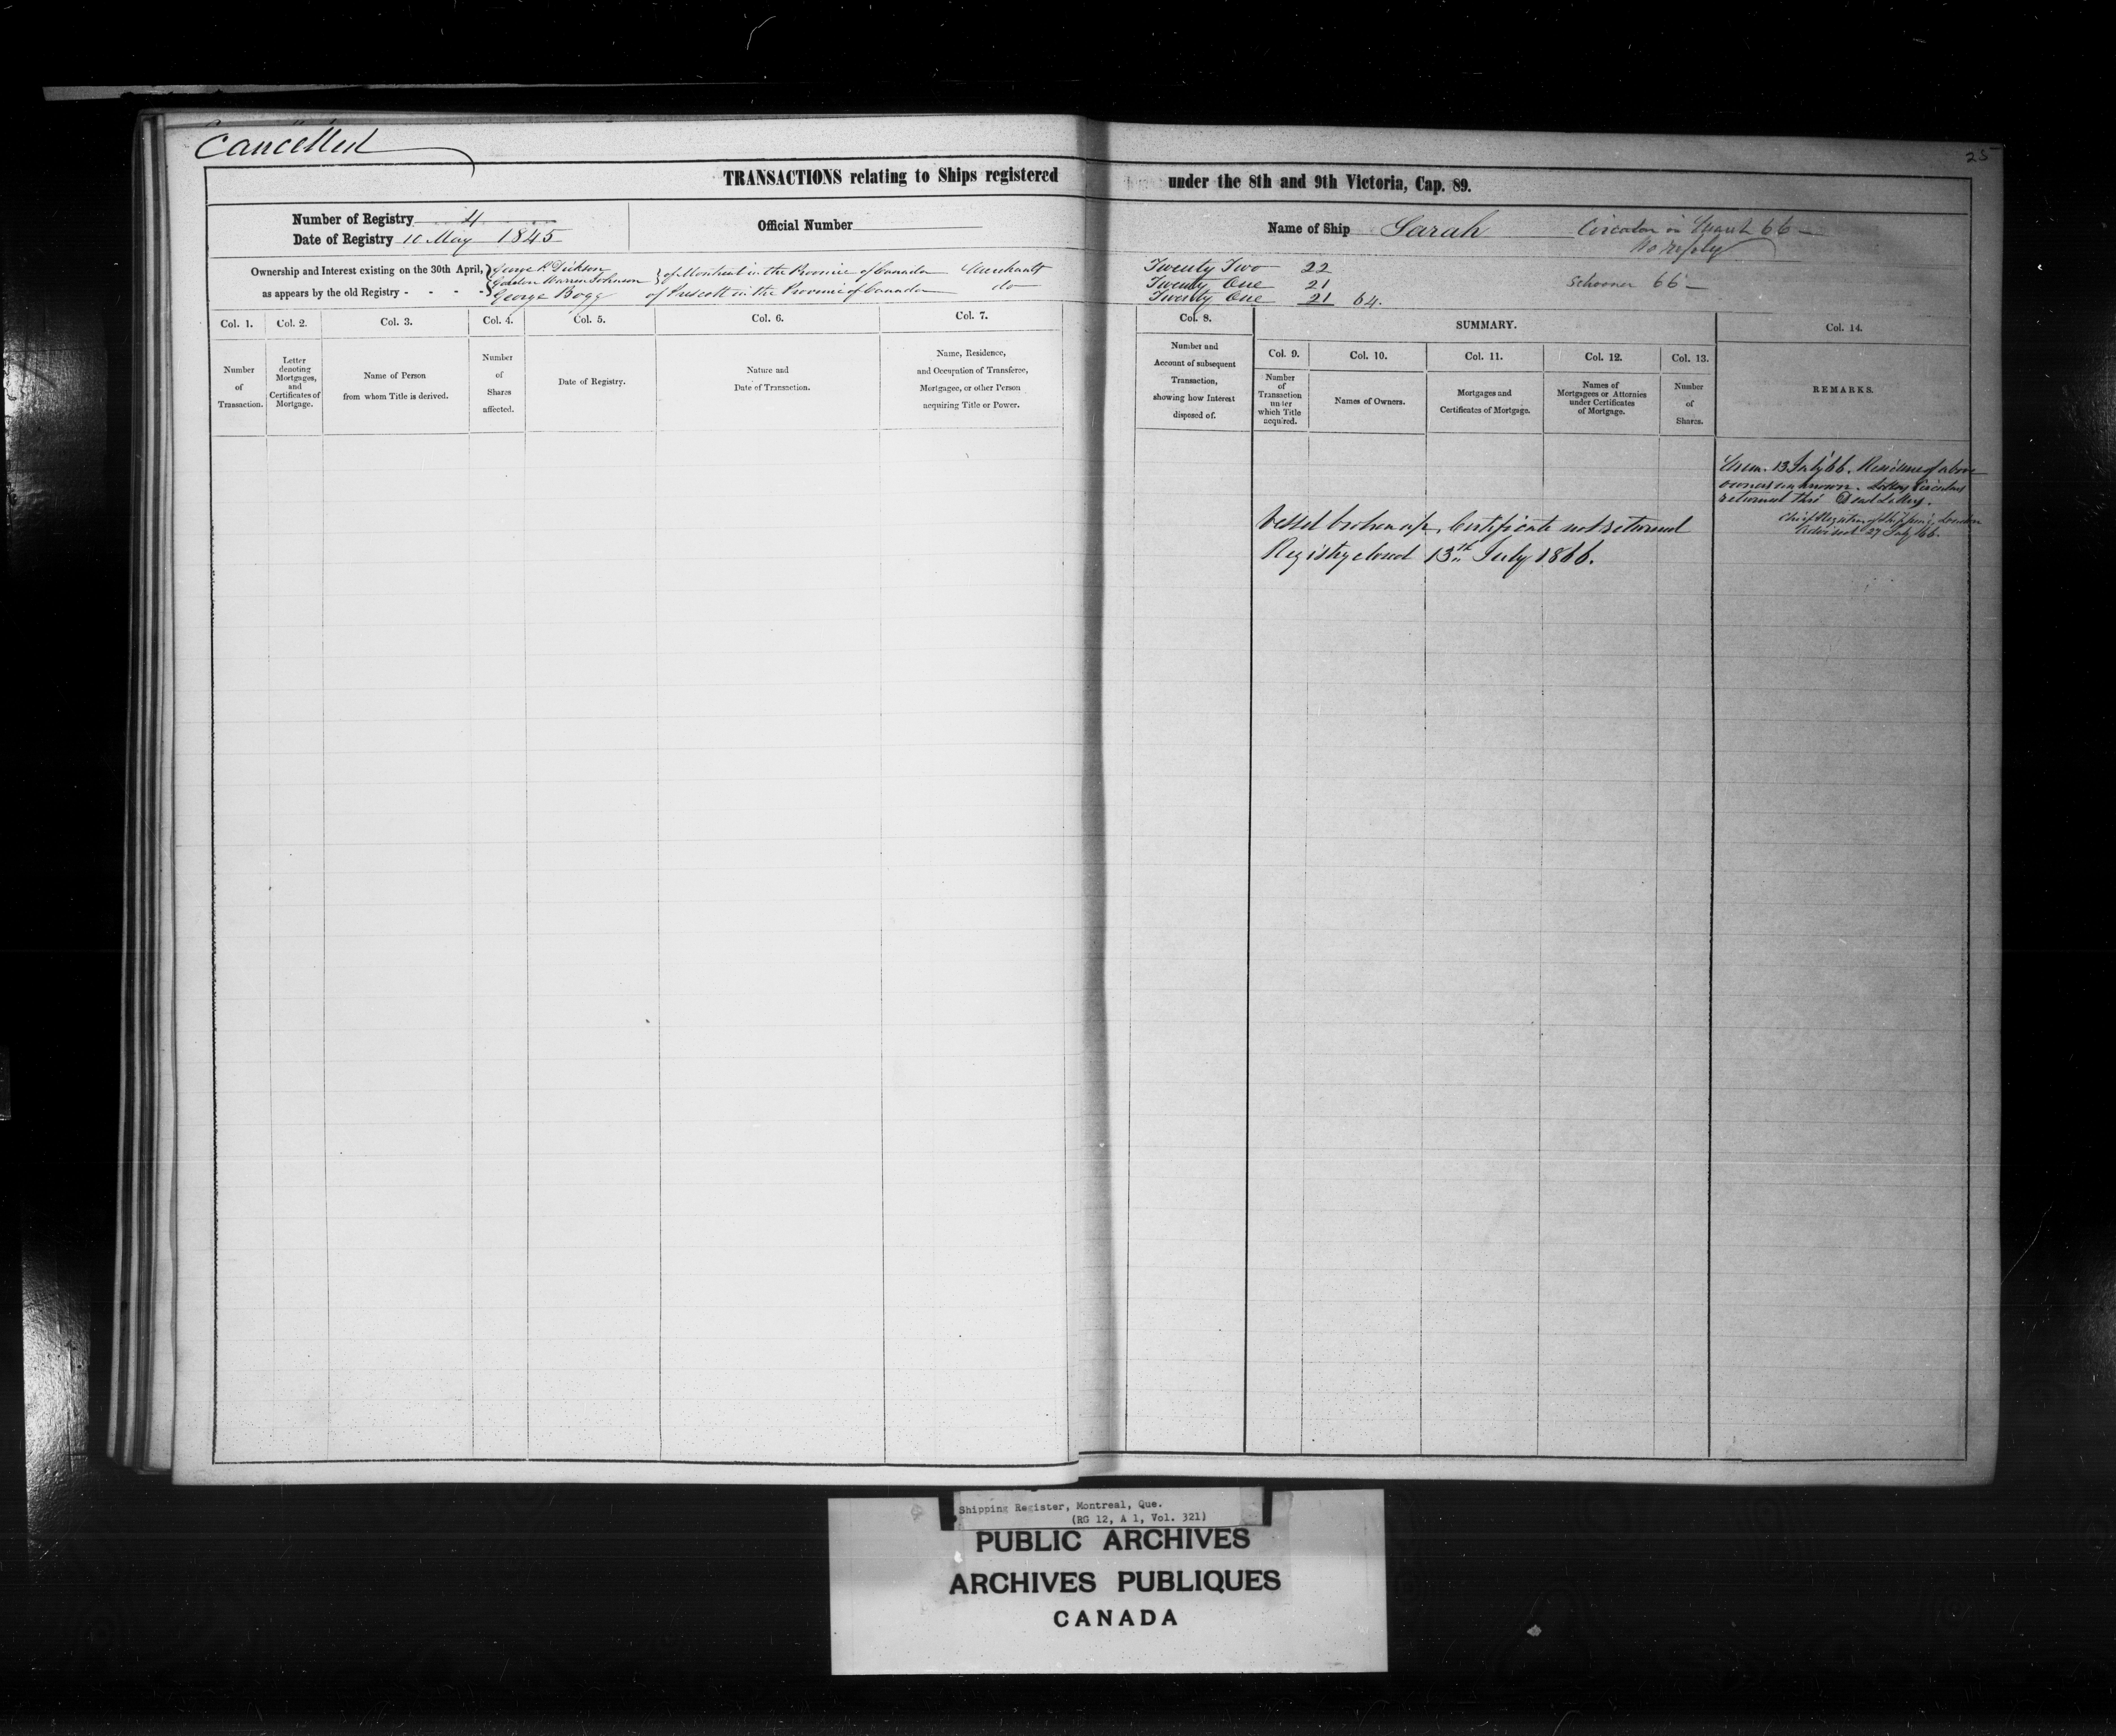 Cancelled
25
TRANSACTIONS relating to Ships registered under the 8th and 9th Victoria, Cap. 89.
Number of Registry 4
Date of Registry 10 May 1845
Official Number
Name of Ship Sarah
Circular in March 66 —
No reply
Schooner 66 —
Ownership and Interest existing on the 30th April,
as appears by the old Registry - - - -
George P. Dickson
Gordon Warren Johnson } of Montreal in the Province of Canada Merchants Twenty Two 22
Twenty One 21
George Bogg of Prescott in the Province of Canada do Twenty One 21 64.
Col. 1. Col. 2. Col. 3. Col. 4. Col. 5. Col. 6. Col. 7. Col. 8.
SUMMARY.
Col. 9. Col. 10. Col. 11. Col. 12. Col. 13. Col. 14.
Number
of
Transaction.
Letter
denoting
Mortgages,
and
Certificates of
Mortgage.
Name of Person
from whom Title is derived.
Number
of
Shares
affected.
Date of Registry.
Nature and
Date of Transaction.
Name, Residence,
and Occupation of Transferee,
Mortgagee, or other Person
acquiring Title or Power.
Number and
Account of subsequent
Transaction,
showing how Interest
disposed of.
Number
of
Transaction
under
which Title
acquired.
Names of Owners.
Mortgages and
Certificates of Mortgage.
Names of
Mortgagees or Attornies
under Certificates
of Mortgage.
Number
of
Shares.
REMARKS.
Mem. 13 July 66. Residence of above
owners unknown. Letters Circulars
returned thro' Dead Letters.
Chief Registrar of Shipping, London
Advised 27 July 66.
Vessel broken up, Certificate not returned
Registry closed 13th July 1866.
Shipping Register, Montreal, Que.
(RG 12, A 1, Vol. 321)
PUBLIC ARCHIVES
ARCHIVES PUBLIQUES
CANADA